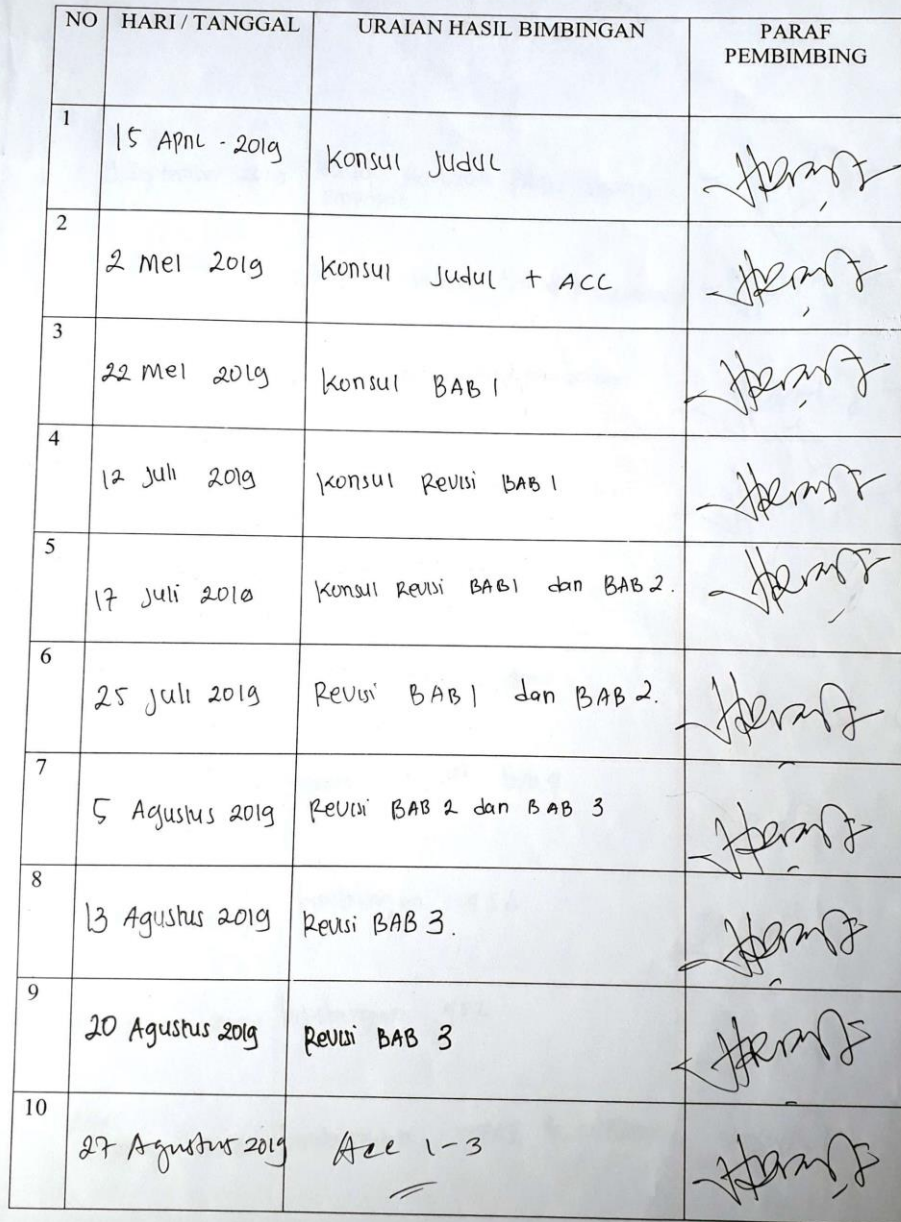 NO HARI / TANGGAL URAIAN HASIL BIMBINGAN PARAF
PEMBIMBING
1 15 April - 2019 Konsul Judul
2 2 Mei 2019 Konsul Judul + ACC
3 22 Mei 2019 Konsul BAB 1
4 12 Juli 2019 Konsul Revisi BAB 1
5 17 Juli 2019 Konsul Revisi BAB 1 dan BAB 2.
6 25 Juli 2019 Revisi BAB 1 dan BAB 2.
7 5 Agustus 2019 Revisi BAB 2 dan BAB 3
8 13 Agustus 2019 Revisi BAB 3.
9 20 Agustus 2019 Revisi BAB 3
10 27 Agustus 2019 Acc 1-3